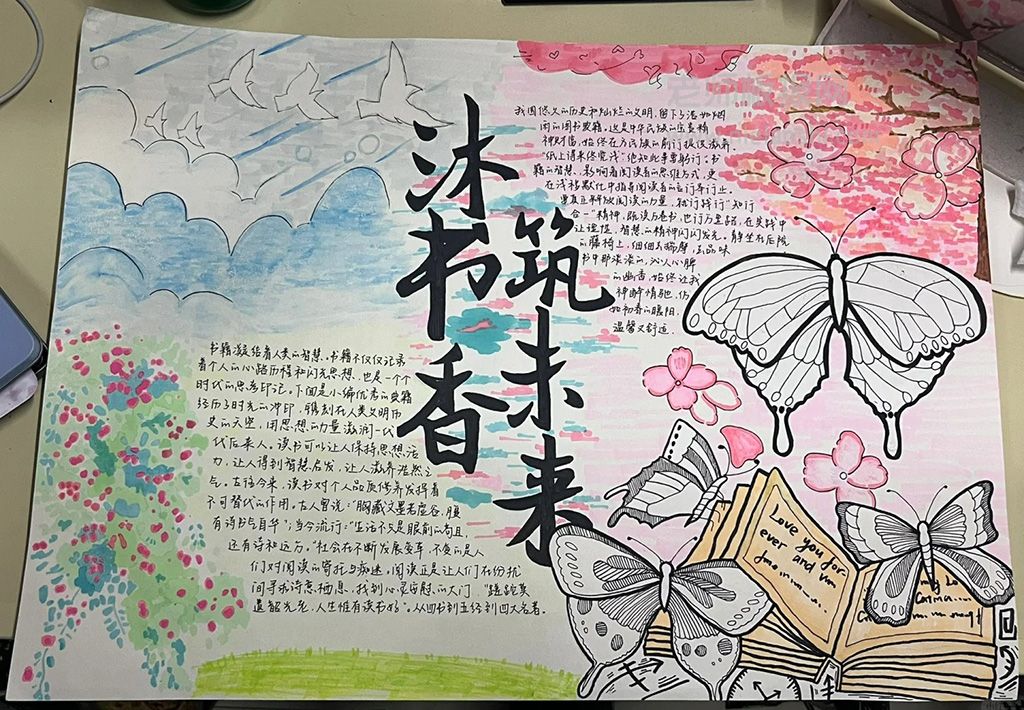 沐书香
筑未来
我国悠久的历史和灿烂的文明,留下了浩如烟
海的图书典籍,这是中华民族的宝贵精
神财富,始终在为民族的前行提供滋养。
“纸上得来终觉浅”绝知此事要躬行。书
籍的智慧,影响着阅读者的思维方式,更
在潜移默化中指导阅读者的言行举止。
要真正释放阅读的力量,就订践行“知行
合一”精神,既读万卷书,也订万里路,在实践中
让理性、智慧的精神闪闪发光。静坐在后院
的藤椅上,细细去揣摩、去品味
书中那淡淡的,沁人心脾
的幽香,始终让我
神醉情驰,仿
如初春的暖阳,
温馨又舒适.
书籍凝结着人类的智慧。书籍不仅仅记录
着个人的心路历程和闪光思想,也是一个个
时代的思考印记。下面是小编优秀的典籍
经历了时光的冲印,镌刻在人类文明历
史的天空,用思想的力量滋润一代
代后来人。读书可以让人保持思想活
力,让人得到智慧启发,让人滋养浩然之
气。古往今来,读书对个人品质修养发挥着
不可替代的作用。古人曾说:“胸藏文墨若虚谷,腹
有诗书气自华”;当今流行:“生活不只是眼前的苟且,
还有诗和远方。”社会在不断发展变革,不变的是人
们对阅读的寄托与痴迷,阅读正是让人们在纷扰
间寻求诗意栖息、找到心灵安慰的大门。
道韶光老,人生惟有读书好”。从四书到五经到四大名著。
Love you for-
ever and